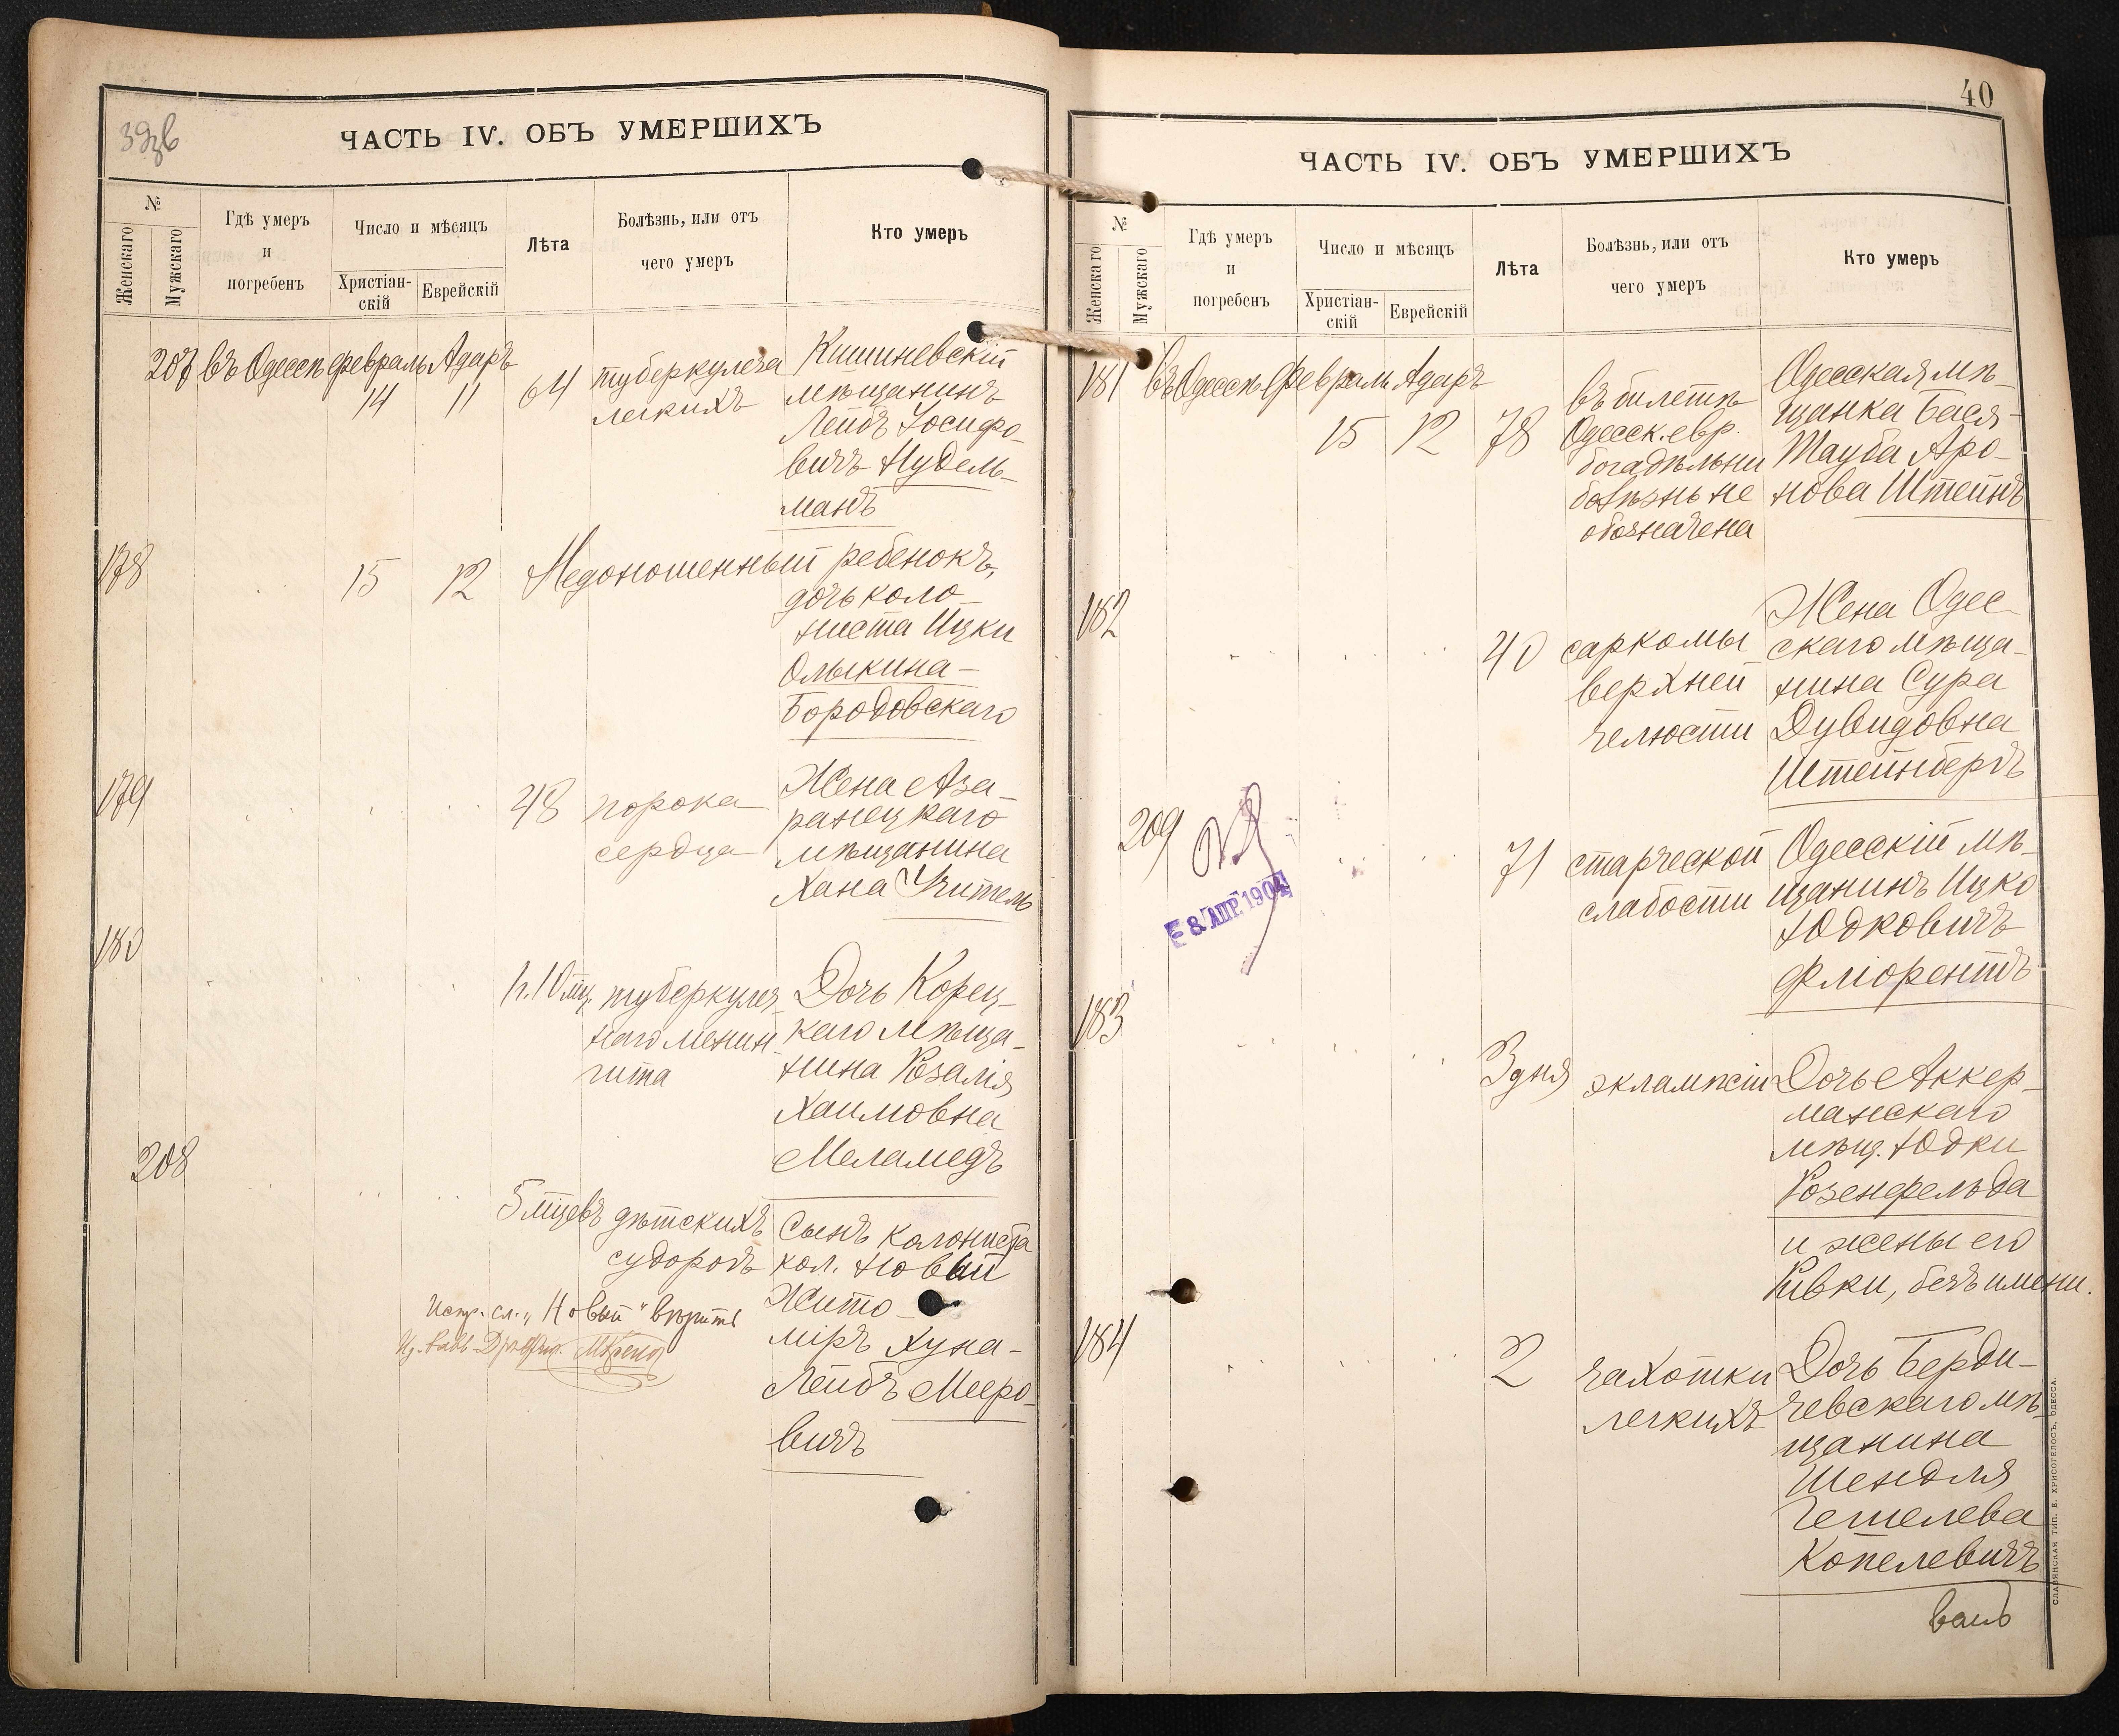 ЧАСТЬ IV. ОБЪ УМЕРШИХЪ
№
Женскаго
Мужскаго
Гдѣ умеръ
и
погребенъ
Число и мѣсяцъ
Христіан-
скій
Еврейскій
Лѣта
Болѣзнь, или отъ
чего умеръ
Кто умеръ
207 въ Одессѣ Февраль Адаръ
14 11 64
туберкулеза
легкихъ
Кишиневскій
мѣщанинъ
Лейбъ Іосифо-
вичъ Нудель-
манъ
178 15 12 Недоношенный ребенокъ,
дочь коло-
ниста Ицки
Олыкина-
Бородовскаго
179 48 порока
сердца
Жена Аза-
ранецкаго
мѣщанина
Хана Учитель
180 1г. 10 мц. туберкулез-
наго менин-
гита
Дочь Корец-
каго мѣща-
нина Розалія
Хаимовна
Меламедъ
208
5 мцевъ дѣтскихъ
судорогъ
Сынъ колониста
кол. Новый
Жито-
міръ Хуна-
Лейбъ Мееро-
вичъ
Испр. сл. „Новый" вѣрить
40
ЧАСТЬ IV. ОБЪ УМЕРШИХЪ
№
Женскаго
Мужскаго
Гдѣ умеръ
и
погребенъ
Число и мѣсяцъ
Христіан-
скій
Еврейскій
Лѣта
Болѣзнь, или отъ
чего умеръ
Кто умеръ
181 въ Одессѣ Февраль Адаръ
15 12 78
въ билетѣ
Одесск. евр.
богадѣльни
болѣзнь не
обозначена
Одесская мѣ-
щанка Бася-
Тауба Аро-
нова Штейнъ
182
40 саркомы
верхней
челюсти
Жена Одес-
скаго мѣща-
нина Сура
Дувидовна
Штейнбергъ
209
8 АПР. 1904
71 старческой
слабости
Одесскій мѣ-
щанинъ Ицко
Юдковичъ
Фліорентъ
183
3 дня эклампсіи
Дочь Аккер-
манскаго
мѣщ. Юдки
Розенфельда
и жены его
Ривки, безъ имени.
184
2 чахотки
легкихъ
Дочь Берди-
чевскаго мѣ-
щанина
Шендля
Гешелева
Копелевичъ
СЛАВЯНСКАЯ ТИП. Е. ХРИСОГЕЛОСЪ, ОДЕССА.